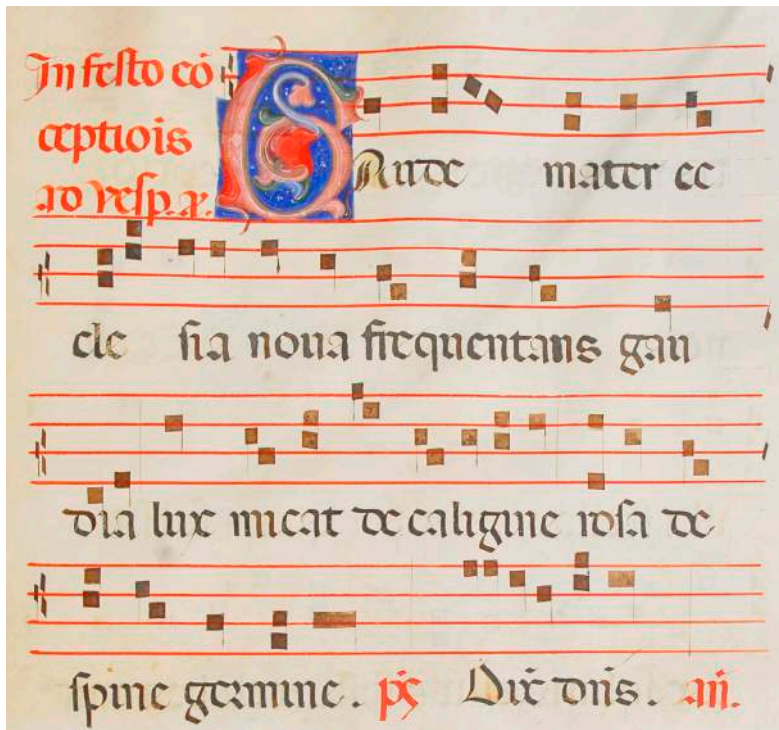 In festo cō
ceptiōis
ad vesp. a.
Gaude mater ec
cle sia noua frequentans gau
dia lux micat de caligine rosa de
spine germine. p̄s Dix̄ dn̄s. an̄.